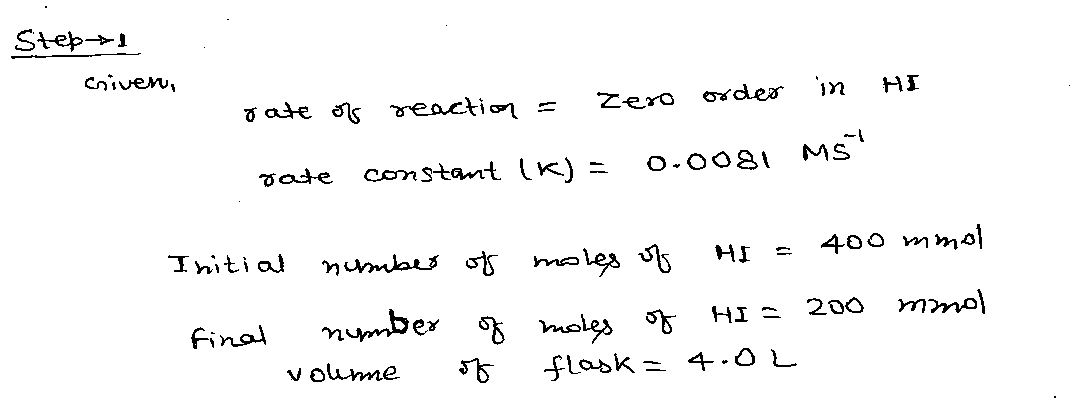 Step→1
Given,
rate of reaction = Zero order in HI
rate constant (K) = 0.0081 MS⁻¹
Initial number of moles of HI = 400 mmol
final number of moles of HI = 200 mmol
volume of flask = 4.0 L